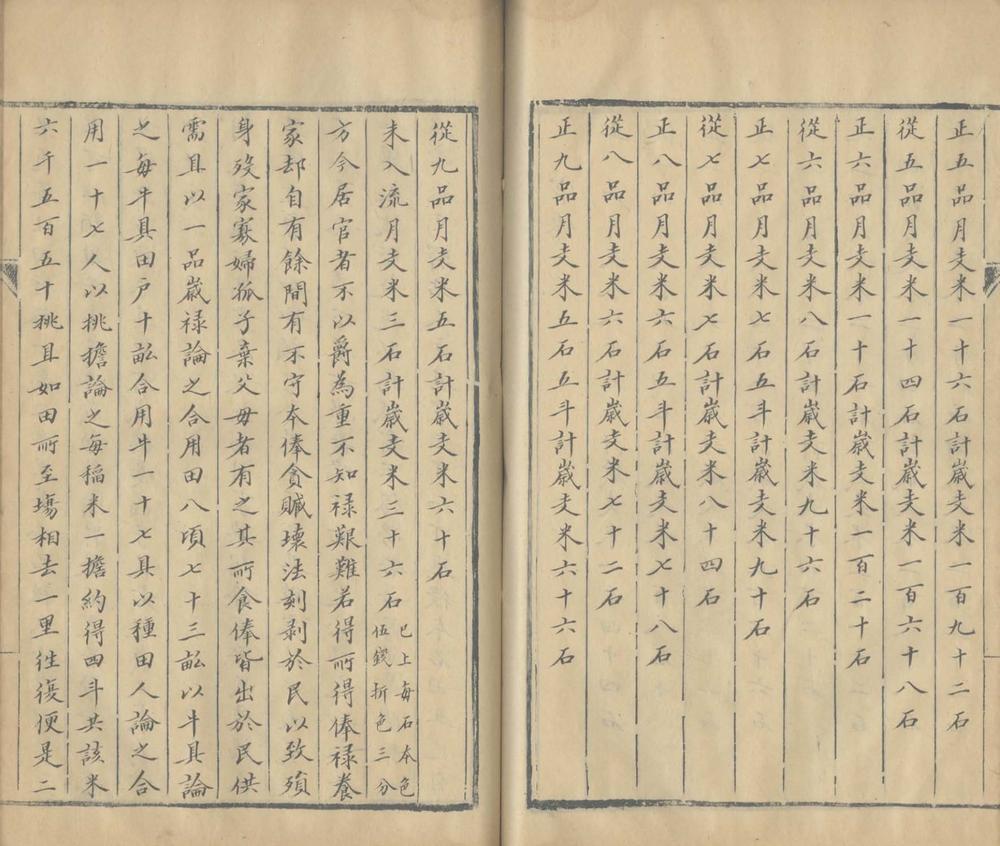 正五品月支米一十六石計歲支米一百九十二石
從五品月支米一十四石計歲支米一百六十八石
正六品月支米一十石計歲支米一百二十石
從六品月支米八石計歲支米九十六石
正七品月支米七石五斗計歲支米九十石
從七品月支米七石計歲支米八十四石
正八品月支米六石五斗計歲支米七十八石
從八品月支米六石計歲支米七十二石
正九品月支米五石五斗計歲支米六十六石
從九品月支米五石計歲支米六十石
未入流月支米三石計歲支米三十六石已上每石本色伍錢折色三分
方今居官者不以爵為重不知祿艱難若得所得俸祿養
家却自有餘間有不守本俸貪贓壞法刻剥於民以致殞
身歿家寡婦孤子棄父母者有之其所食俸皆出於民供
需且以一品歲祿論之合用田八頃七十三畝以牛具論
之每牛具田戶十畝合用牛一十七具以種田人論之合
用一十七人以挑擔論之每稲米一擔約得四斗共該米
六千五百五十挑且如田所至塲相去一里徃復便是二